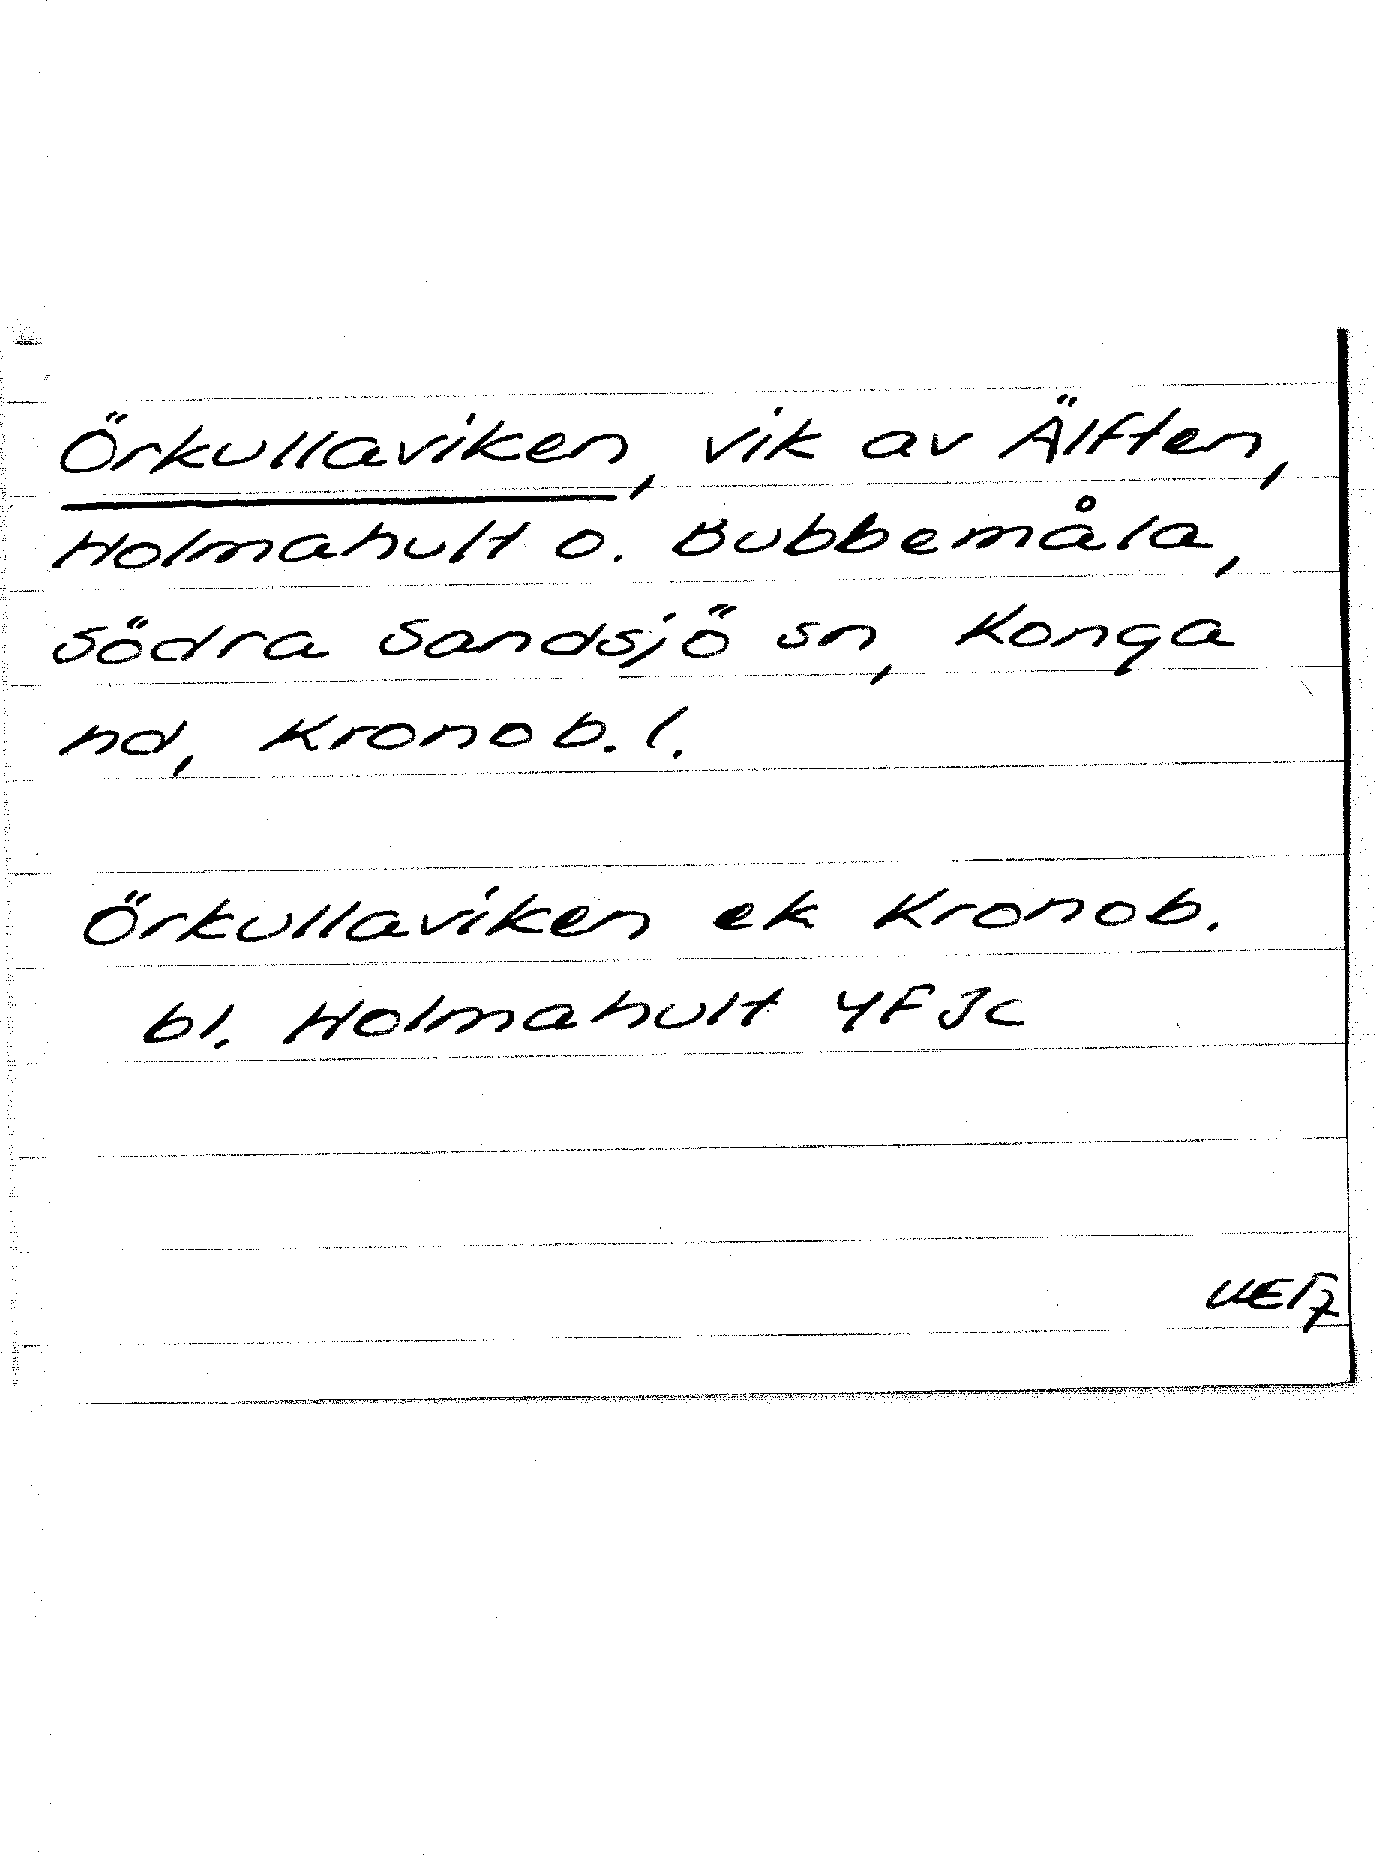 Örkullaviken, vik av Älften,
Holmahult o. Bubbemåla,
Södra Sandsjö sn, Konga
hd, Kronob. l.
Örkullaviken ek Kronob.
bl. Holmahult 4F Jc